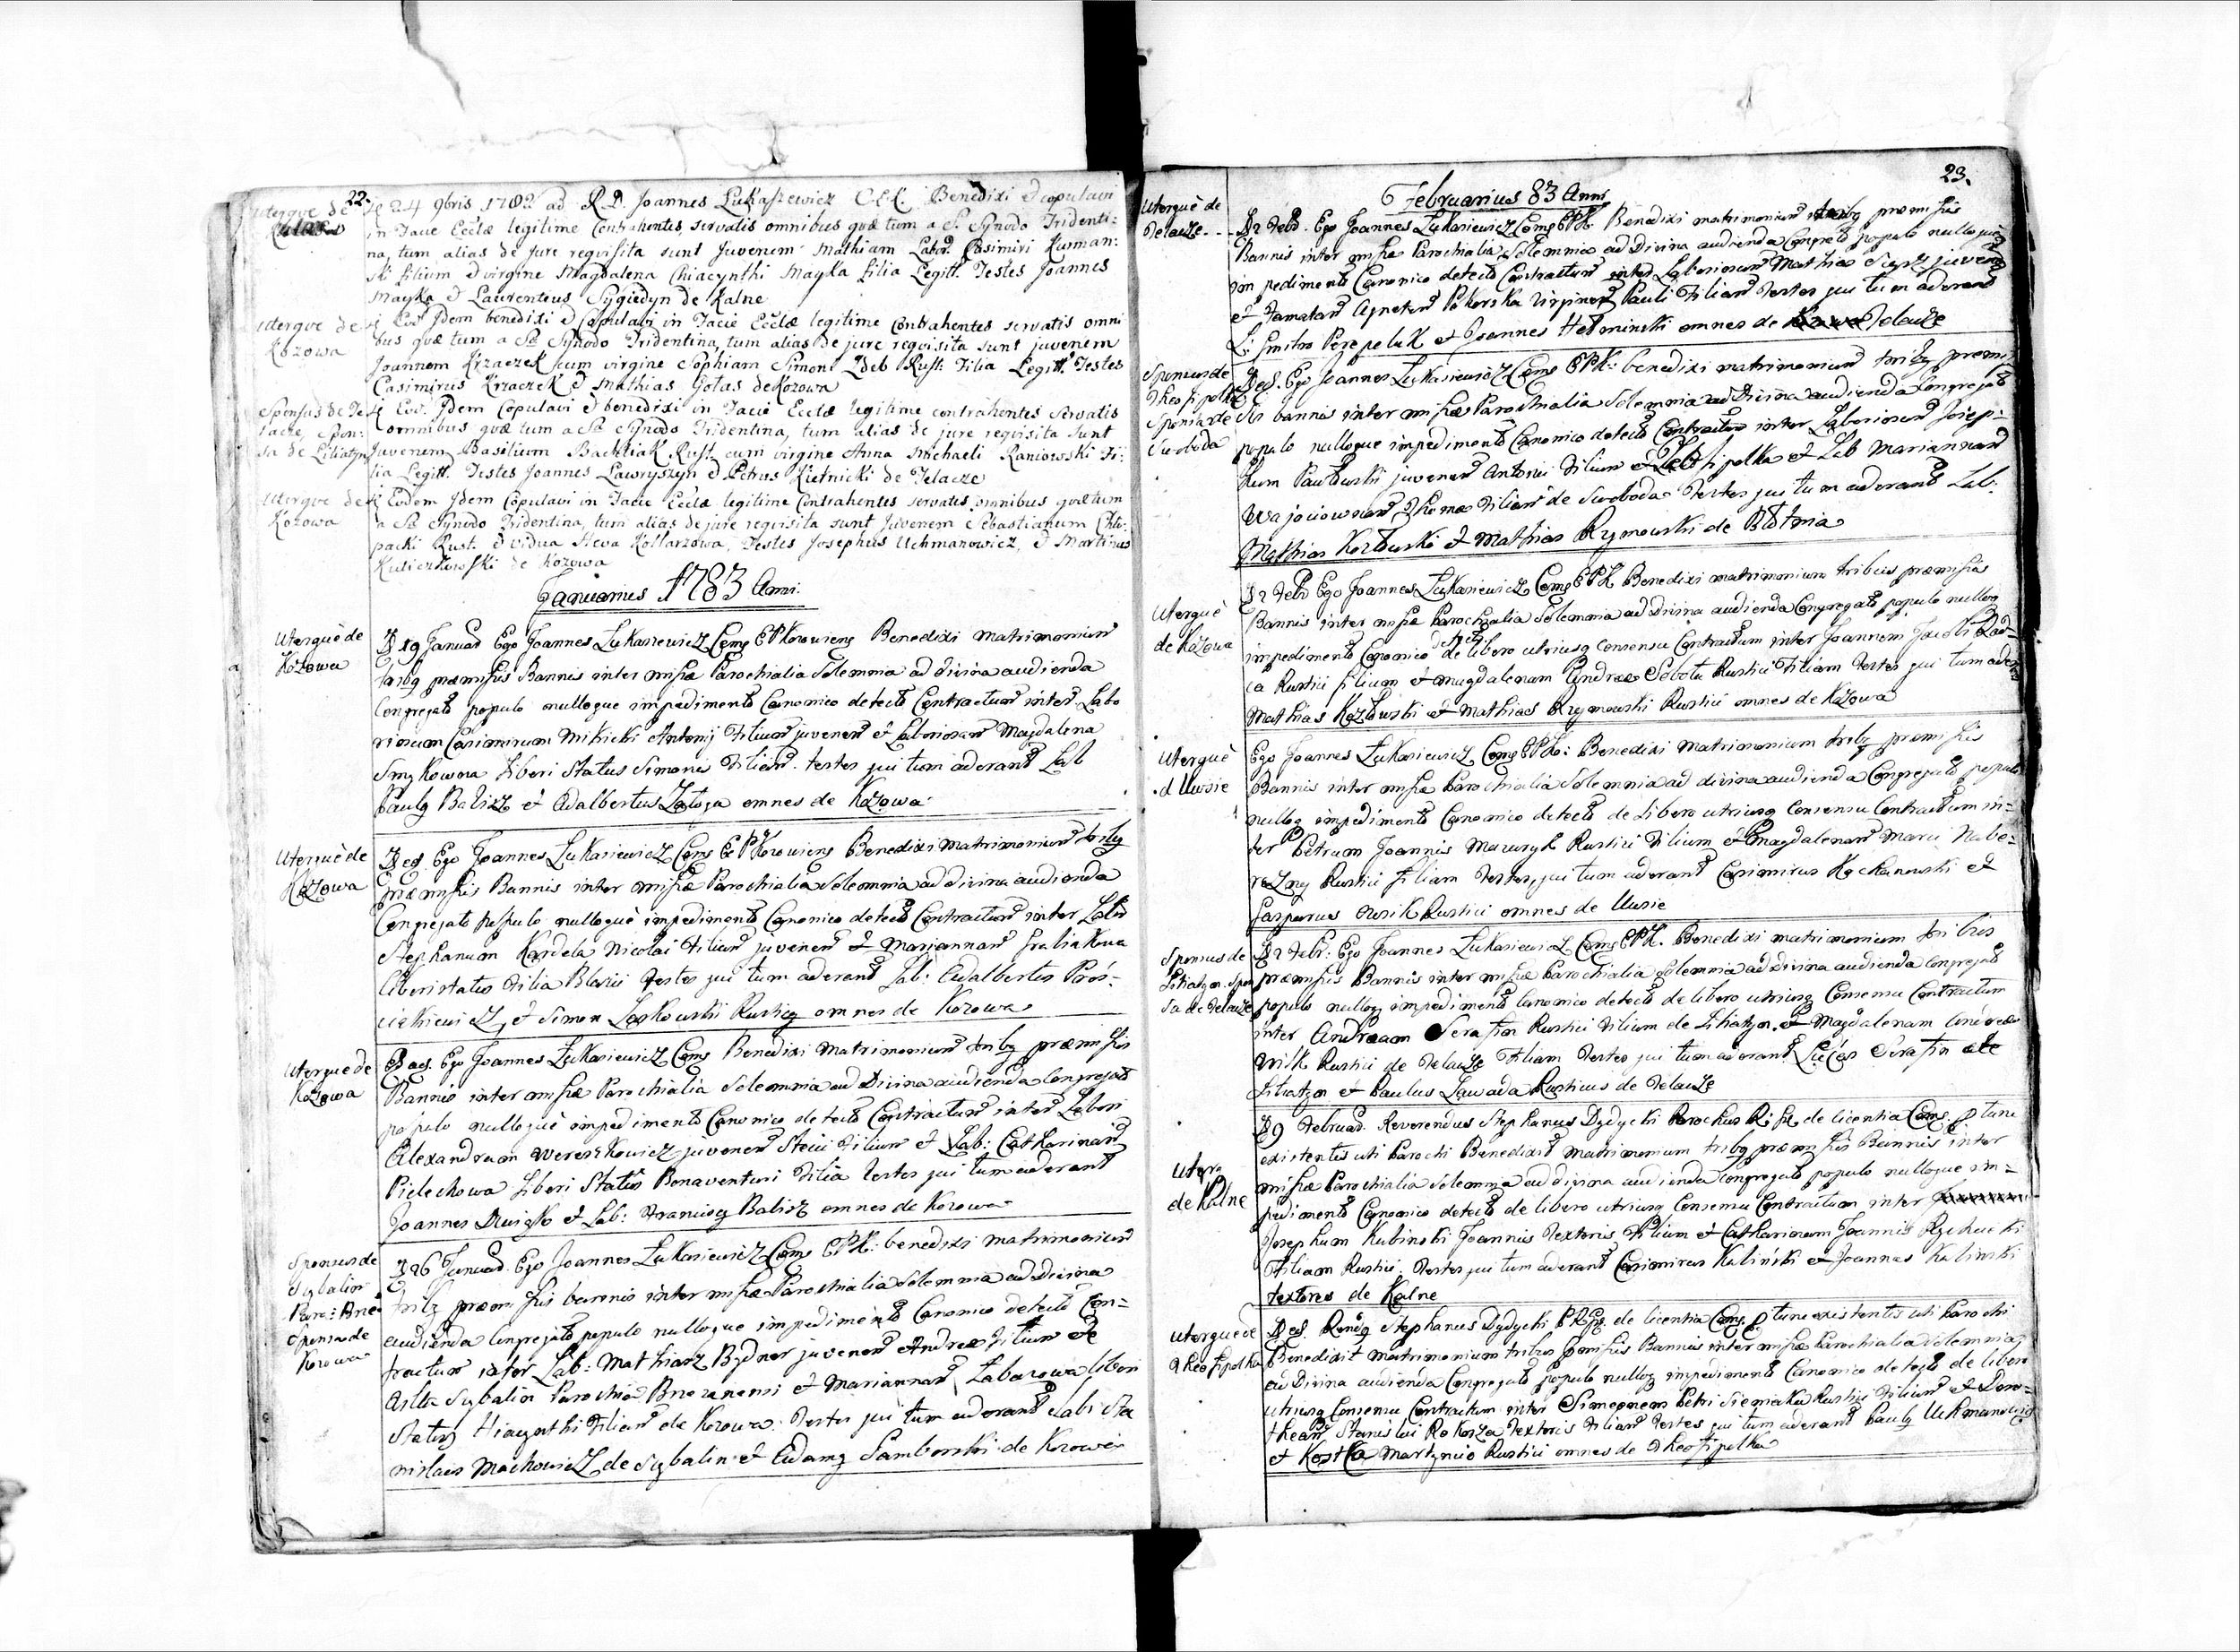 22.
Uterque de
Kalne
Die 24 9bris 1782 ad R. D. Joannes Lukaszewicz C.E.K. Benedixi & copulavi
in Facie Ecclæ legitime Contrahentes, servatis omnibus quæ tum a S. Synodo Tridenti:
na, tum alias de Jure requisita sunt Juvenem Mathiam Labor. Casimiri Kuman:
ski filium & virgine Magdalena Chiacynthi Mayka filia Legitt. Testes Joannes
Mayka & Laurentius Sygiedyn de Kalne
Uterque de
Kozowa
Eod. Idem benedixi & Copulavi in Facie Ecclæ legitime Contrahentes servatis omni
bus quæ tum a Sa Synodo Tridentina, tum alias de jure requisita sunt juvenem
Joannem Krzaczek cum virgine Sophiam Simoni Zdeb Rust: Filia Legitt. Testes
Casimirus Krzaczek & Mathias Gotas de Kozowa
Sponsus de Te
lacze, Spon:
sa de Liliatyn
Eod. Idem Copulavi & benedixi in Facie Ecclæ legitime contrahentes servatis
omnibus quæ tum a Sa Synodo Tridentina, tum alias de jure requisita sunt
Juvenem Basilium Bachliak Rust. cum virgine Anna Michaeli Raniowski Fi:
lia Legitt. Testes Joannes Lawryszyn & Petrus Kietnicki de Telacze
Uterque de
Kozowa
Eodem Idem Copulavi in Facie Ecclæ legitime Contrahentes servatis omnibus quæ tum
a Sa Synodo Tridentina, tum alias de jure requisita sunt Juvenem Sebastianum Chlo:
packi Rust. & vidua Heva Kottarzowa, Testes Josephus Uchmanowicz, & Martinus
Kusiczkowski de Kozowa
Januarius 1783 Anni.
Uterquè de
Kozowa
D 19 Januar Ego Joannes Lukasiewicz Coms EPKozowiens Benedixi Matrimonium
tribq præmissis Bannis inter missæ Parochialia Solemnia ad divina audienda
Congregato populo nulloque impedimento Canonico detecto Contractum inter Labo
riosum Casimirum Mikicki Antonij Filium juvenem & Laboriosam Magdalena
Smykowna Liberi Status Simonis Filiam. testes qui tum aderant Lab
Paulq Balisz et Adalbertus Zatoga omnes de Kozowa
Uterquè de
Kozowa
D eod. Ego Joannes Lukasiewicz Coms EPKozowiens Benedixi Matrimonium tribq
præmissis Bannis inter missæ Parochialia Solemnia ad divina audienda
Congregato Populo nulloquè impedimento Canonico detecto Contractum inter Labor
Stephanum Kardela Nicolai Filium juvenem & Mariannam
liberi status Filia Blasii testes qui tum aderant Lab: Adalbertus
et Simon Laskowski Rusticq omnes de Kozowa
Uterque de
Kozowa
D eod. Ego Joannes Lukasiewicz Coms Benedixi Matrimonium tribq præmissis
Bannis inter missæ Parochialia Solemnia ad Divina audienda Congregato
populo nulloquè impedimento Canonico detecto Contractum inter Labori
Alexandrum Wereszkowicz juvenem Steni Filium et Lab: Catharinam
Pielechowa Liberi Status Bonaventuri Filia testes qui tum aderant
Joannes et Lab: Franciscq Balisz omnes de Kozowa
Sponsus de
Sybalin
Paro: Brze
Sponsa de
Kozowa
D 26 Januar. Ego Joannes Lukasiewicz Coms EPK: benedixi matrimonium
tribq præmissis bannis inter missæ Parochialia Solemnia ad Divina
audienda Congregato populo nulloque impedimento Canonico detecto Con=
tractum inter Lab: Mathiasz Bydnar juvenem Andreæ Filium de
Sybalin Parochia Brzezanensi et Mariannam Labazowa liberi
Status Hiacynthi Filiam de Kozowa. testes qui tum aderant Lab: Sta
nislaus Machowicz de Sybalin et Adamq Samborski de Kozowa
23.
Februarius 83 Anni
Uterquè de
Telacze
D 2 Febr. Ego Joannes Lukasiewicz Coms EPK Benedixi matrimonium tribq præmissis
Bannis inter missæ Parochialia Solemnia ad Divina audienda Congreto populo nulloquè
impedimento Canonico detecto Contractum inter Laboriosum Mathias juvenem
et Famatam Agnetem Pokorska Virginem Pauli Filiam testes qui tum aderant
L: Dmitro Perepeluk et Joannes Herminski omnes de Telacze
Sponsus de
Theofipolka
Sponsa de
Swoboda
D eod. Ego Joannes Lukasiewicz Coms EPK: benedixi matrimonium tribq præmis
sis bannis inter missæ Parochialia Solemnia ad Divina audienda Congregato
populo nulloque impedimento Canonico detecto Contractum inter Laboriosum Josep=
hum Pawłowski juvenem Antonii Filium et Lab Mariannam
Wajciownam Thomæ Filiam de Swoboda Testes qui tum aderant Lab:
Mathias Kozłowski et Mathias Rymowski de
Uterquè
de Kozowa
D 2 Febr Ego Joannes Lukasiewicz Coms EPK Benedixi matrimonium tribus præmissis
Bannis inter missæ Parochialia Solemnia ad Divina audienda Congregato populo nulloq
impedimento Canonico detecto de libero utriusq consensu Contractum inter Joannem Jacobi
Rustici filium et Magdalenam Andreæ Sobota Rustici Filiam testes qui tum aderant
Mathias Kozłowski et Mathias Rymowski Rustici omnes de Kozowa
Uterquè
d Uusie
Ego Joannes Lukasiewicz Coms EPKo: Benedixi Matrimonium tribq præmissis
Bannis inter missæ Parochialia Solemnia ad divina audienda Congregato populo
nulloq impedimento Canonico detecto de libero utriusq Consensu Contractum in=
ter Petrum Joannis Mazuryk Rustici Filium et Magdalenam Marci Nabe=
rezny Rustici filiam testes, qui tum aderant Casimirus Kochanowski et
Gasparus Rustici omnes de Uusie
Sponsus de
Litiatyn. Spon
sa de Telacze
D 2 Febr: Ego Joannes Lukasiewicz Coms EPK. Benedixi matrimonium tribus
præmissis Bannis inter missæ Parochialia Solemnia ad Divina audienda Congregato
populo nulloq impedimento Canonico detecto de libero utriusq Consensu Contractum
inter Andream Serafin Rustici Filium de Litiatyn. et Magdalenam Andreæ
Wilk Rustici de Telacze Filiam testes qui tum aderant Lucas Serafin de
Litiatyn et Paulus Zawada Rusticus de Telacze
Uterq
de Kalne
D 9 Februar. Reverendus Stephanus Dydycki Parochus R: de licentia Coms. P tunc
existentis uti Parochi Benedixit matrimonium tribq præmissis Bannis inter
missæ Parochialia Solemnia ad divina audienda Congregato populo nulloque im=
pedimento Canonico detecto de libero utriusq Consensu Contractum inter
Josephum Kubinski Joannis Textoris Filium et Catharinam Joannis Rychucki
Filiam Rustici. testes qui tum aderant Casimirus Kaliński et Joannes Kaliński
textores de Kalne
Uterque de
Theofipolka
D eod. Rendq Stephanus Dydycki de licentia Coms. P tunc existentis uti Parochi
Benedixit matrimonium tribus præmissis Bannis inter missæ Parochialia Solemnia
ad Divina audienda Congregato populo nulloq impedimento Canonico detecto de libero
utriusq Consensu Contractum inter Simeonem Petri Siemiaka Rustici Filium et Doro=
theam Stanislai Rokosza Textoris Filiam testes qui tum aderant Paulq Uchmanowicz
et Kostka Martynicio Rustici omnes de Theofipolka